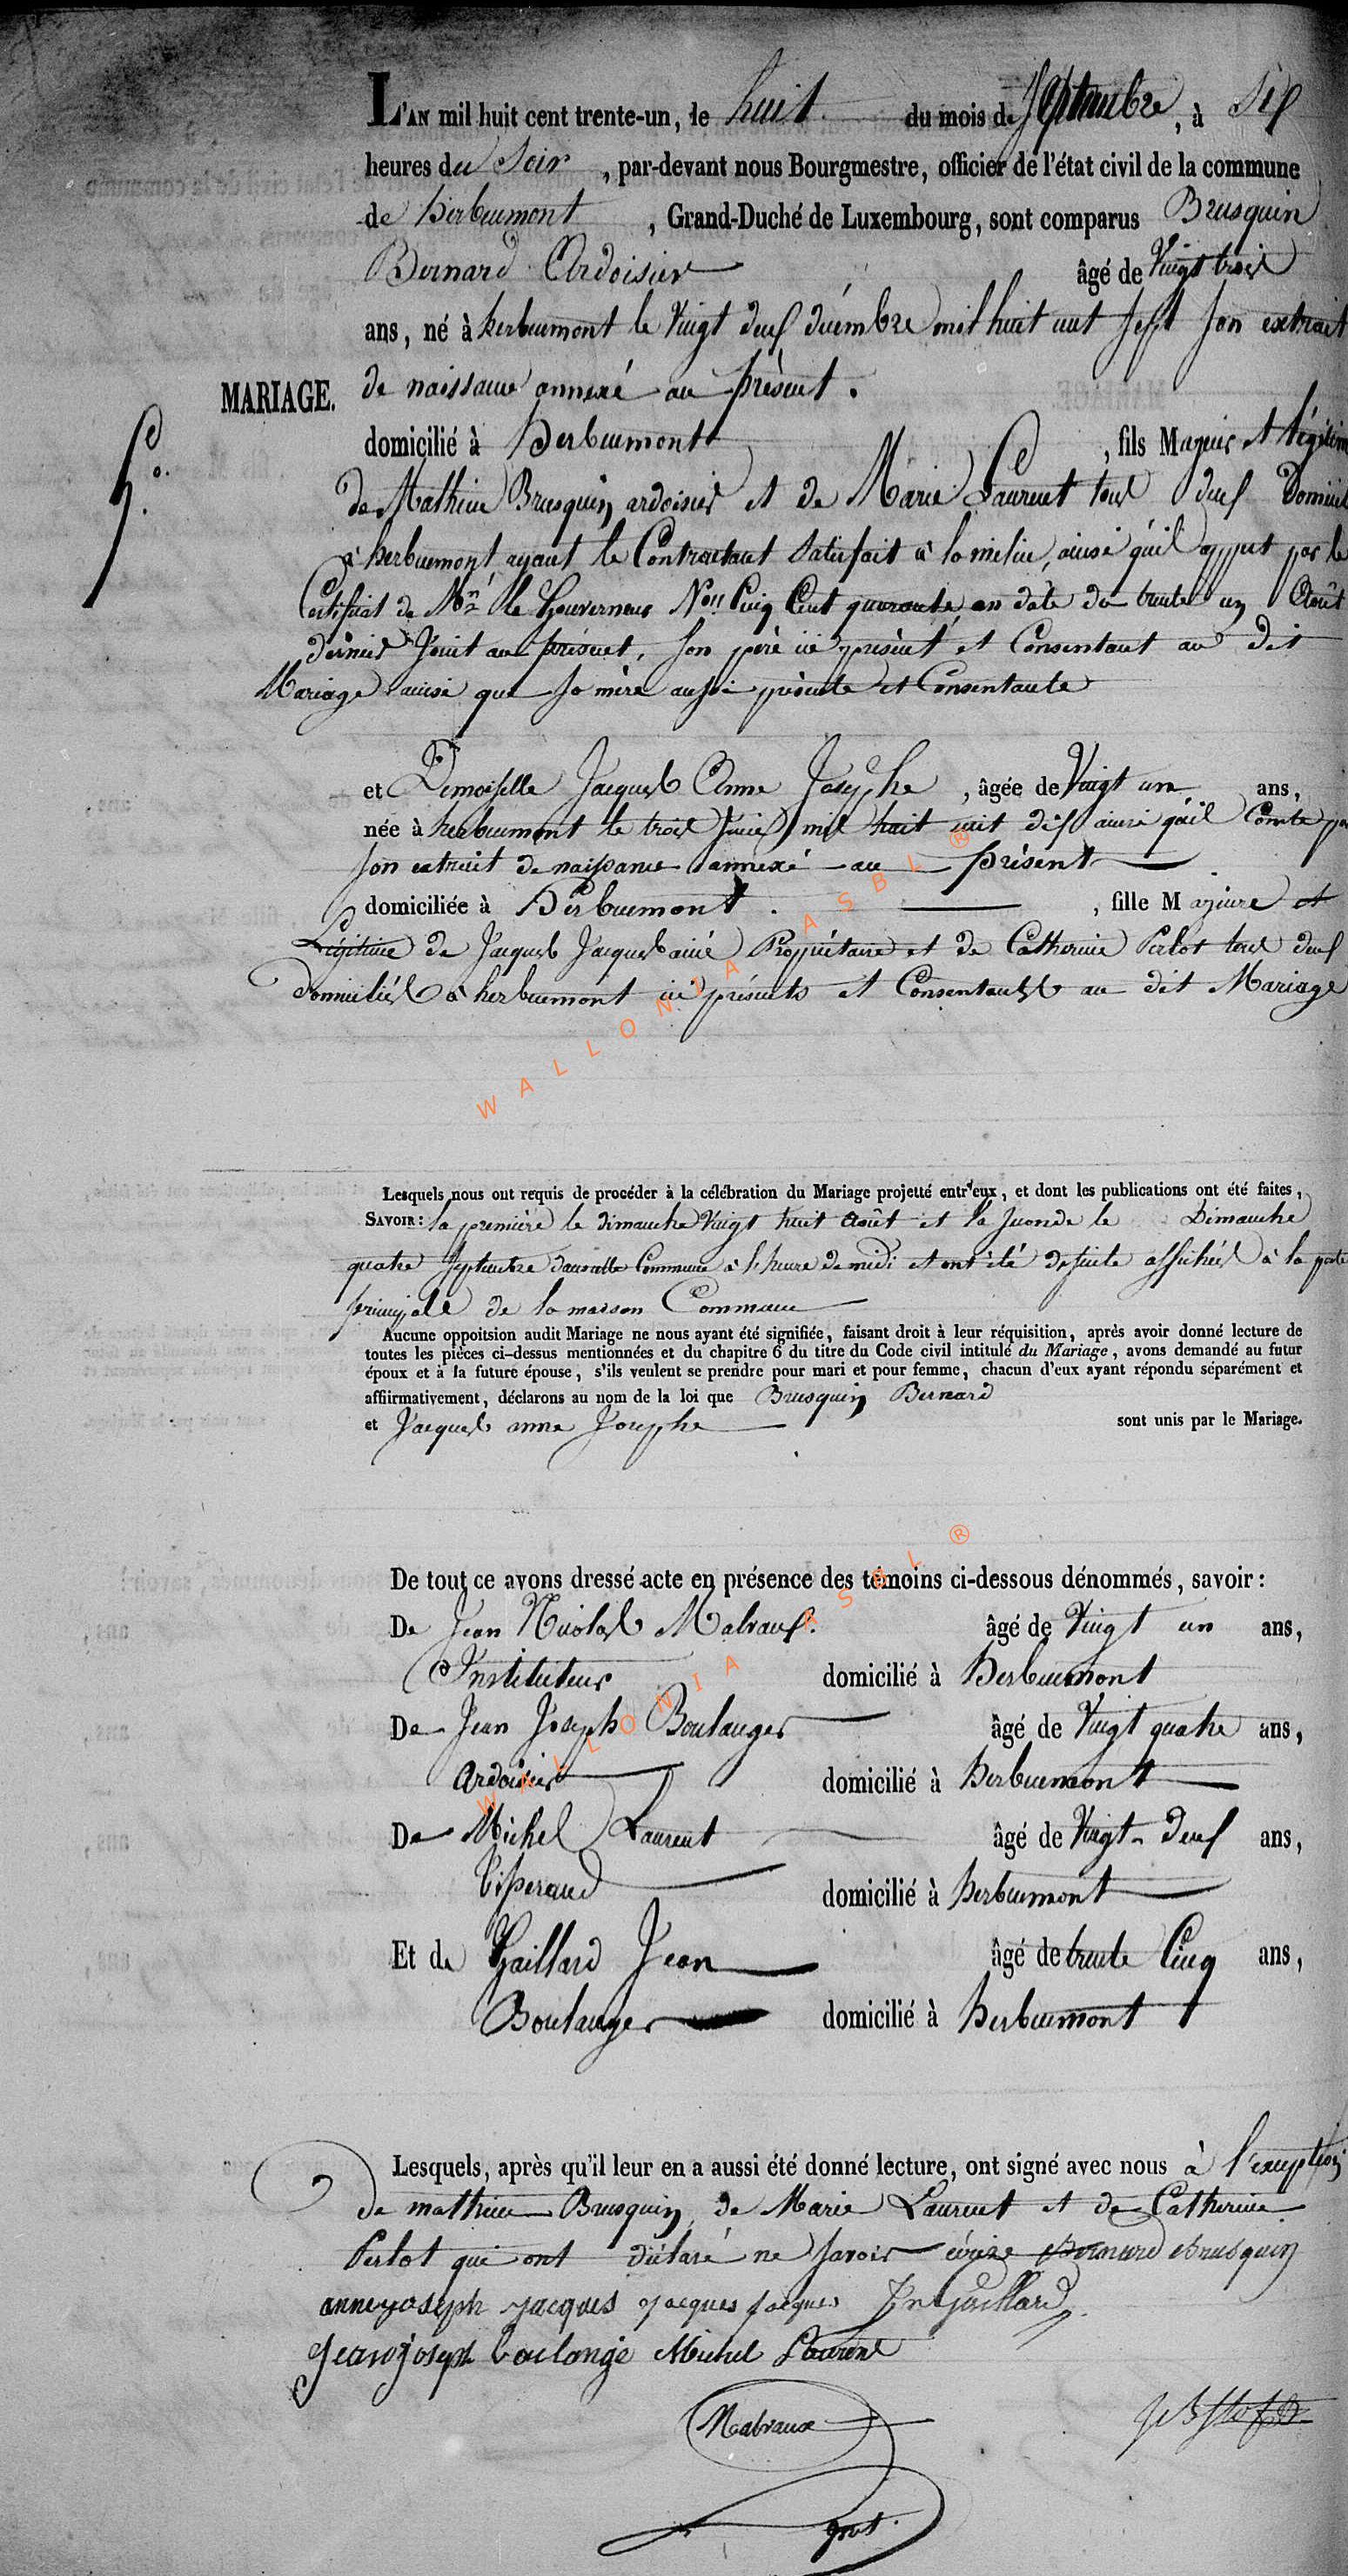 L'AN mil huit cent trente-un, le huit du mois de Septembre, à six
heures du Soir, par-devant nous Bourgmestre, officier de l'état civil de la commune
de herbeumont, Grand-Duché de Luxembourg, sont comparus Brusquin
Bernard Ardoisier âgé de Vingt trois
ans, né à herbeumont le Vingt deux décembre mil huit cent sept son extrait
MARIAGE. de naissance annexé au présent.
domicilié à herbeumont, fils Majeur et légitime
de Mathieu Brusquin ardoisier et de Marie Laurent tous deux Domicil
à herbeumont, ayant le Contractant Satisfait à la milice, ainsi qu'il appert par le
Certificat de Mr. le Gouverneur No. Cinq Cent quarante en date du trente un Août
dernier Joint au présent, Son père ici présent et Consentant au dit
Mariage ainsi que sa mère aussi présente et Consentante
et Demoiselle Jacques Anne Josephe, âgée de Vingt un ans,
née à herbeumont le trois mil huit cent dix ainsi qu'il Conste par
son extrait de naissance annexé au présent
domiciliée à Herbeumont., fille Majeure et
Légitime de Jacques Jacques ainé Propriétaire et de Catherine Perlot tous deux
domiciliés à herbeumont ici présents et Consentants au dit Mariage
WALLONIA ASBL ®
Lesquels nous ont requis de procéder à la célébration du Mariage projetté entr'eux, et dont les publications ont été faites,
SAVOIR: la première le dimanche Vingt huit Août et la seconde le Dimanche
quatre Septembre dans cette Commune à l'heure de midi et ont été de suite affichées à la porte
principale de la maison Commune
Aucune oppoitsion audit Mariage ne nous ayant été signifiée, faisant droit à leur réquisition, après avoir donné lecture de
toutes les pièces ci-dessus mentionnées et du chapitre 6 du titre du Code civil intitulé du Mariage, avons demandé au futur
époux et à la future épouse, s'ils veulent se prendre pour mari et pour femme, chacun d'eux ayant répondu séparément et
affiirmativement, déclarons au nom de la loi que Brusquin Bernard
et Jacques anne Josephe sont unis par le Mariage.
De tout ce avons dressé acte en présence des témoins ci-dessous dénommés, savoir:
De Jean Nicolas Malvaux. âgé de Vingt un ans,
Instituteur domicilié à Herbeumont
De Jean Joseph Boulanger âgé de Vingt quatre ans,
ardoisier domicilié à Herbeumont
De Michel Laurent âgé de Vingt-deux ans,
Tisserand domicilié à Herbeumont
Et de Gaillard Jean âgé de trente Cinq ans,
Boulanger domicilié à Herbeumont
WALLONIA ASBL ®
Lesquels, après qu'il leur en a aussi été donné lecture, ont signé avec nous à l'exception
de mathieu Brusquin, de Marie Laurent et de Catherine
Perlot qui ont déclaré ne savoir écrire Bernard Brusquin
anne joseph jacques jacques jacques Jn Gaillard
jean joseph boulange Michel Laurent
Malvaux